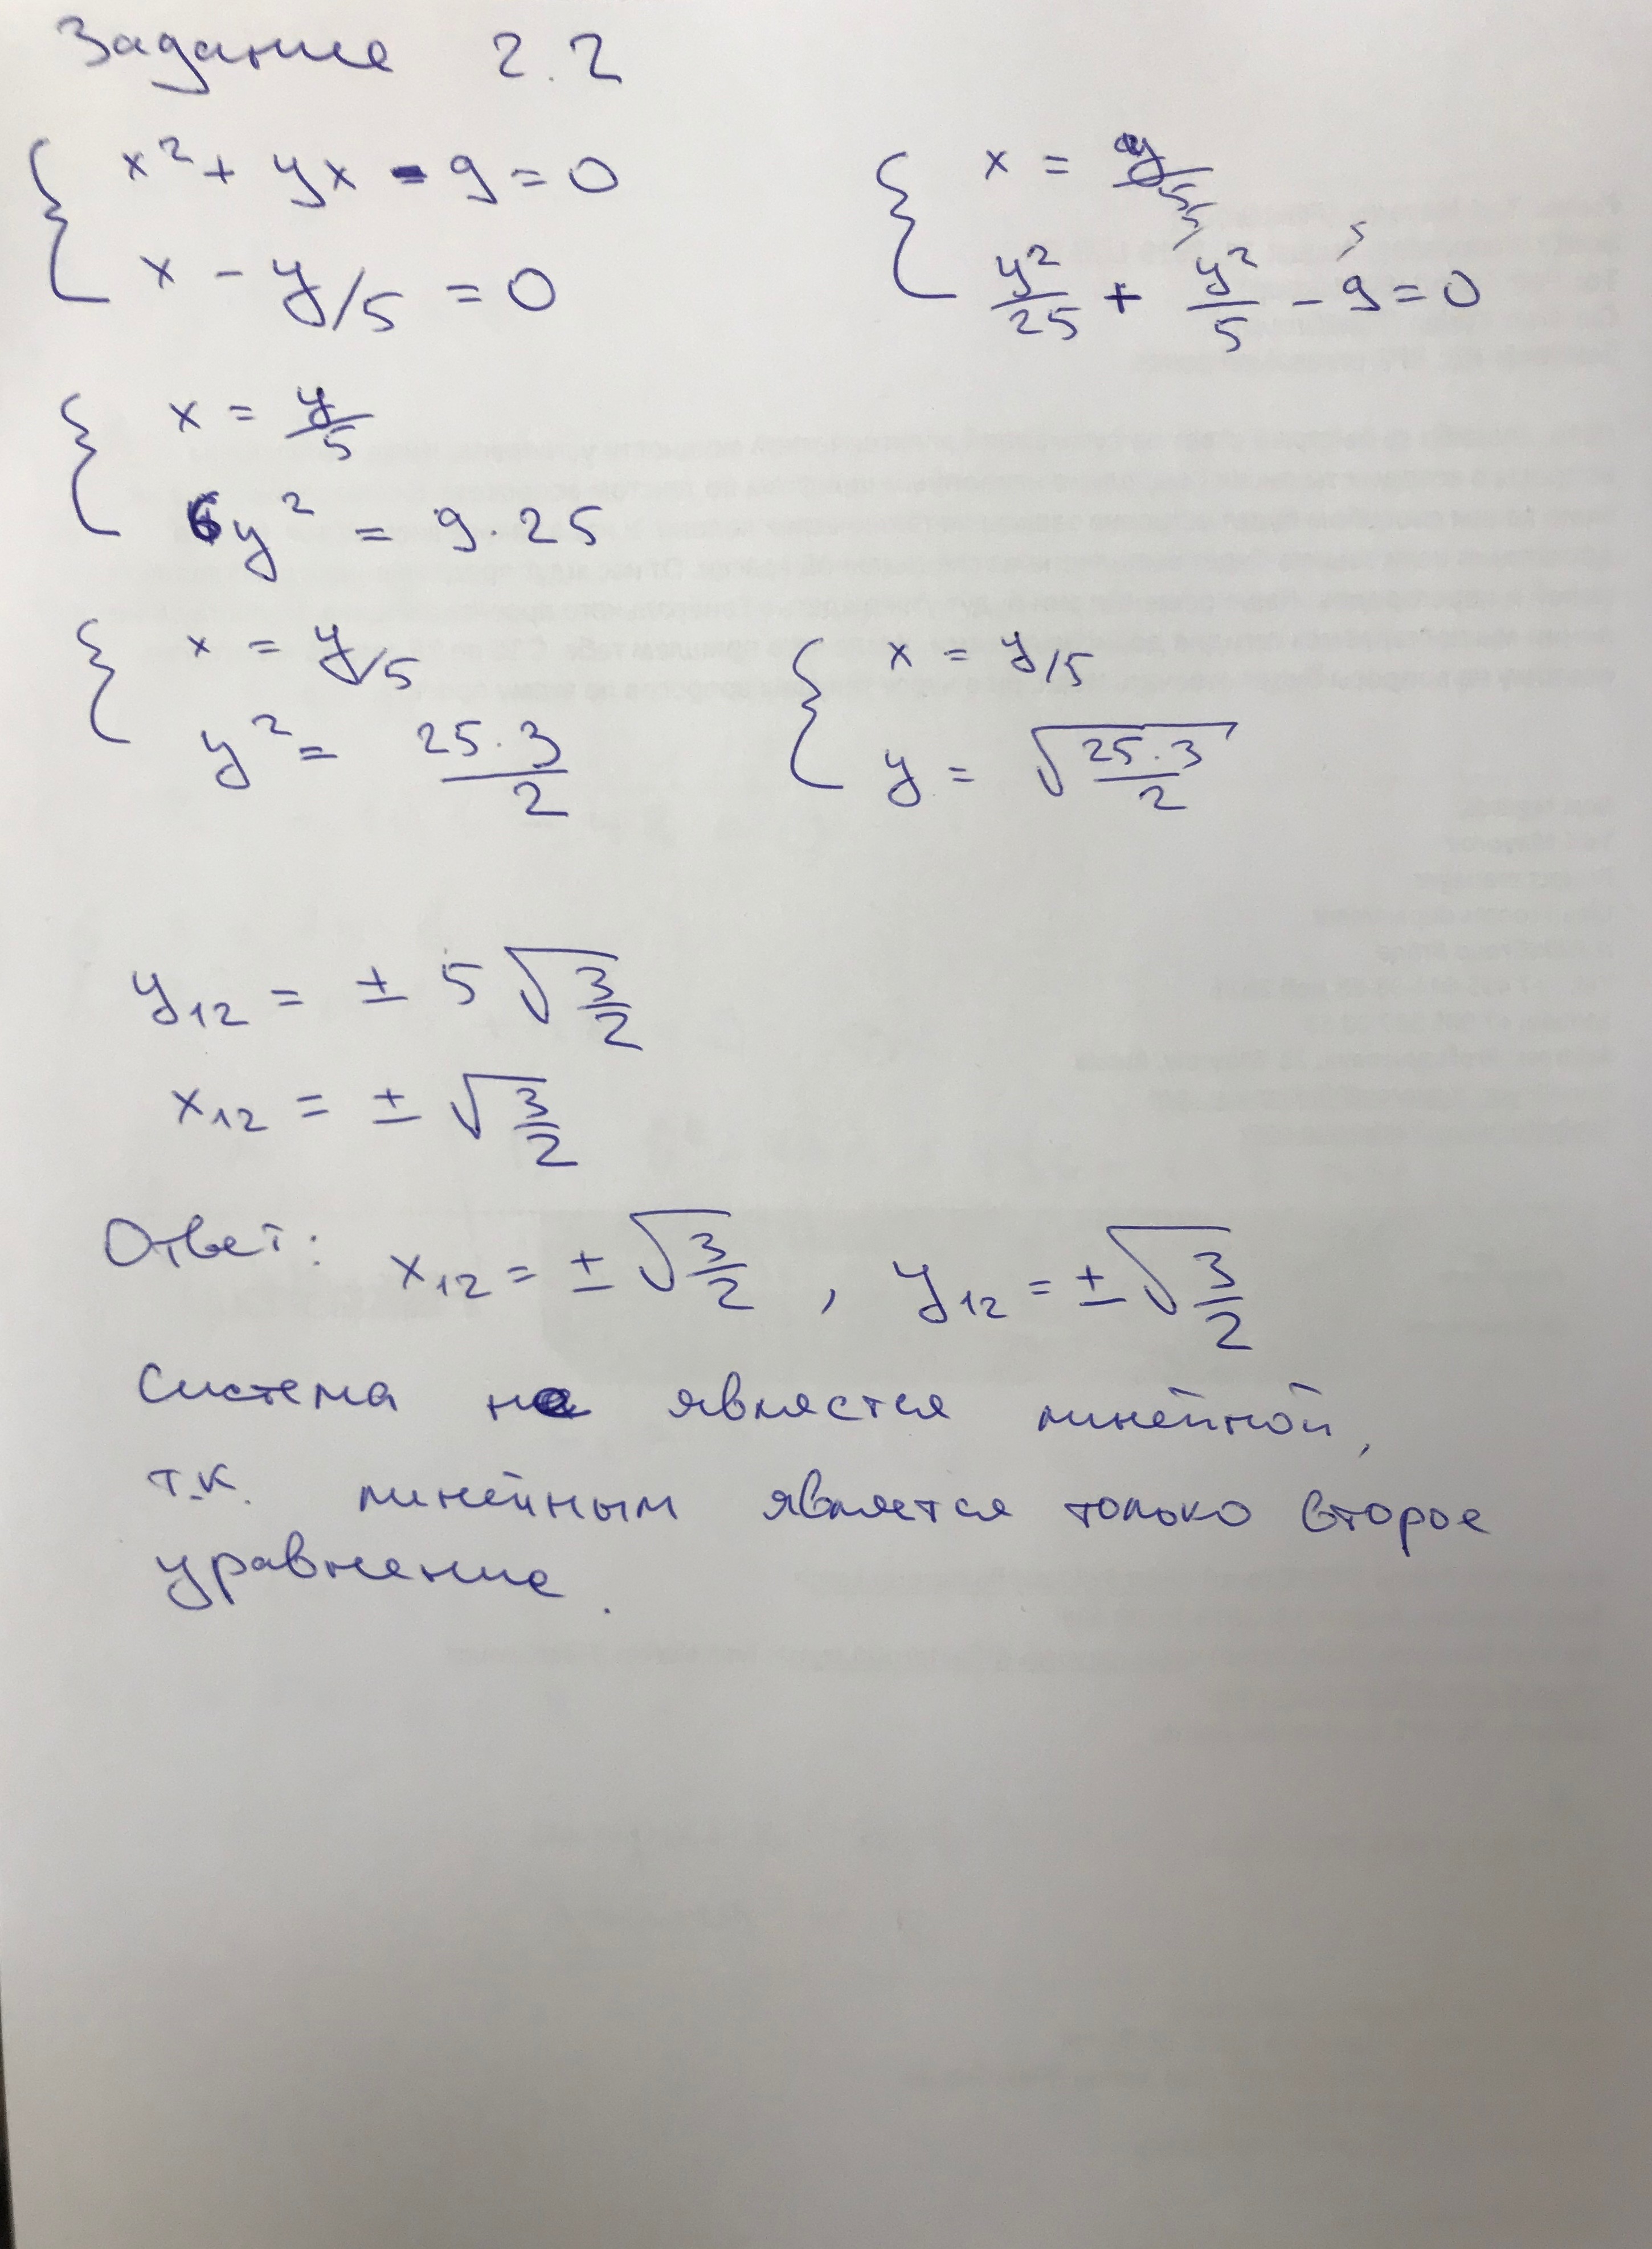 Задание 2.2
{ x² + yx - 9 = 0
x - y/5 = 0
{ x = y/5
y²/25 + y²/5 - 9 = 0
{ x = y/5
6y² = 9·25
{ x = y/5
y² = 25·3/2
{ x = y/5
y = √(25·3/2)
y₁₂ = ± 5 √(3/2)
x₁₂ = ± √(3/2)
Ответ: x₁₂ = ± √(3/2) , y₁₂ = ± √(3/2)
Система не является линейной,
т.к. линейным является только второе
уравнение.